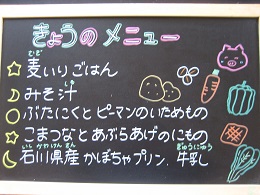 きょうのメニュー
むぎ
麦いりごはん
みそ汁
ぶたにくとピーマンのいためもの
こまつなとあぶらあげのにもの
いしかわけんさん ぎゅうにゅう
石川県産かぼちゃプリン.牛乳